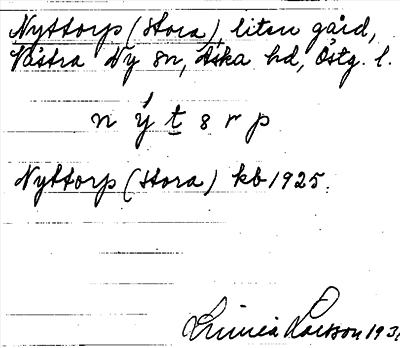 Nyttorp (Stora), liten gård,
Västra Ny sn, Aska hd, Östg. l.
n ý t s r p
Nyttorp (Stora) kb 1925.
Linnéa Larsson 193